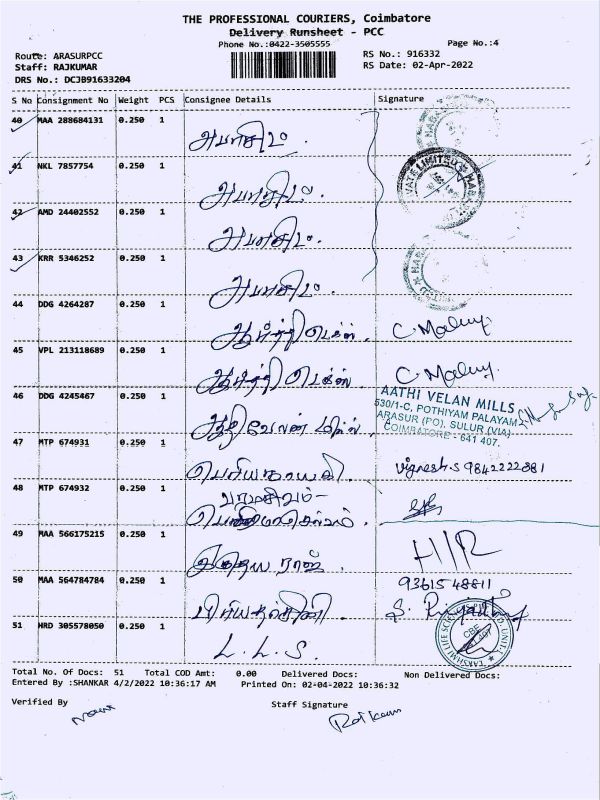 THE PROFESSIONAL COURIERS, Coimbatore
Delivery Runsheet - PCC
Phone No.:0422-3505555
Page No.:4
Route: ARASURPCC
RS No.: 916332
Staff: RAJKUMAR
RS Date: 02-Apr-2022
DRS No.: DCJB91633204
S No Consignment No Weight PCS Consignee Details Signature
40 MAA 288684131 0.250 1
அபாசிடம்.
41 NKL 7857754 0.250 1
அபாசிடம்.
42 AMD 24402552 0.250 1
அபாசிடம்.
43 KRR 5346252 0.250 1
அபாசிடம்.
44 DDG 4264287 0.250 1
டெக்ஸ். C. Maluy.
45 VPL 213118689 0.250 1
டெக்ஸ். C. Maluy.
46 DDG 4245467 0.250 1
ஆதி வேலன் மில்ஸ்.
AATHI VELAN MILLS
530/1-C, POTHIYAM PALAYAM
ARASUR (PO), SULUR (VIA)
COIMBATORE - 641 407.
47 MTP 674931 0.250 1
பெரியநாயகி. Vignesh.S 9842222881
48 MTP 674932 0.250 1
பரமசிவம் -
49 MAA 566175215 0.250 1
இதய ராஜ்.
50 MAA 564784784 0.250 1
9361548811
பிரியதர்சினி. S. Priyadharsini
51 HRD 305578050 0.250 1
L.L.S.
Total No. Of Docs: 51 Total COD Amt: 0.00 Delivered Docs: Non Delivered Docs:
Entered By :SHANKAR 4/2/2022 10:36:17 AM Printed On: 02-04-2022 10:36:32
Verified By
Staff Signature
Rajkumar